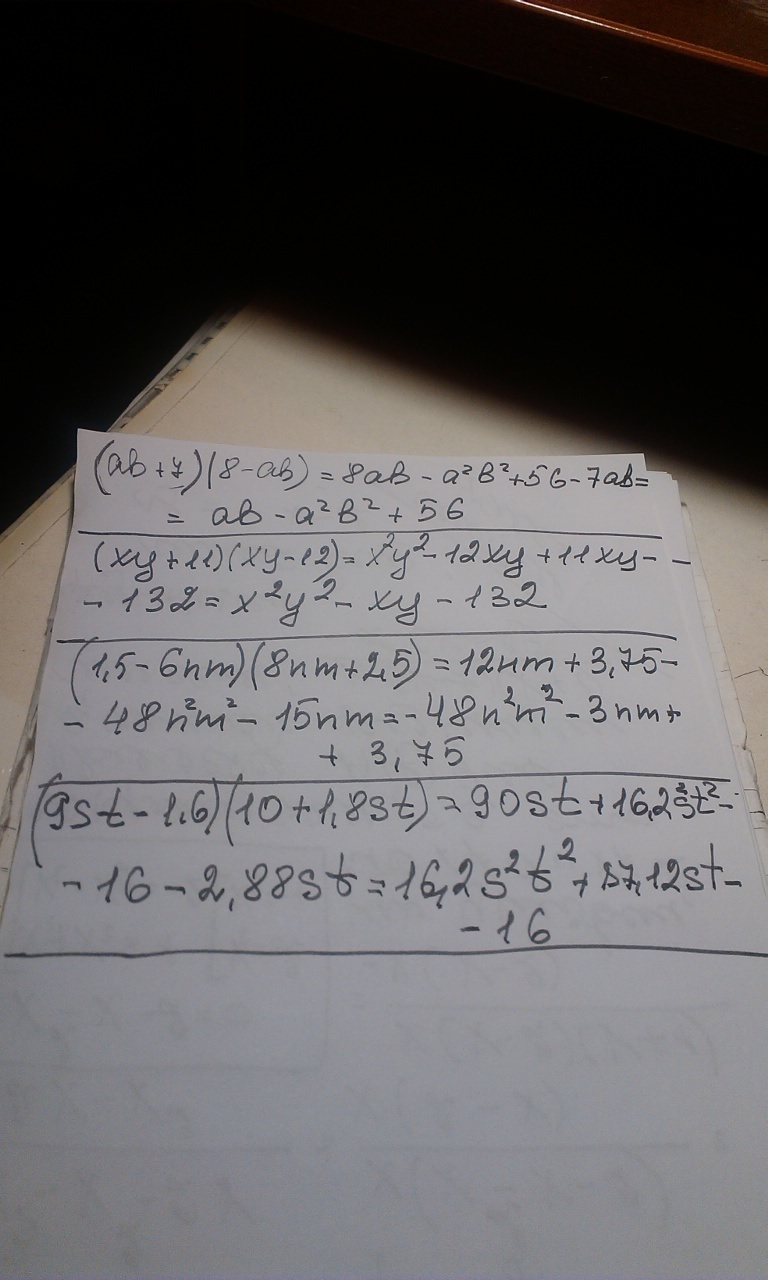 (ab+7)(8-ab)=8ab-a²b²+56-7ab=
= ab-a²b²+56
(xy+11)(xy-12)=x²y²-12xy+11xy-
-132=x²y²-xy-132
(1,5-6nm)(8nm+2,5)=12nm+3,75-
-48n²m²-15nm=-48n²m²-3nm+
+ 3,75
(9st-1,6)(10+1,8st)=90st+16,2s²t²-
-16-2,88st=16,2s²t²+87,12st-
-16